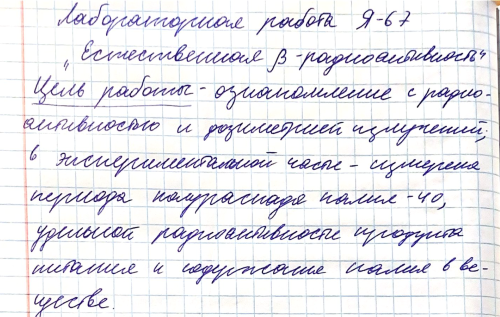 Лабораторная работа Я-67
„Естественная β-радиоактивность"
Цель работы - ознакомление с радио-
активностью и дозиметрией излучений;
в экспериментальной части - измерена
периода полураспада калия-40,
удельной радиоактивности продукта
питания и содержание калия в ве-
ществе.